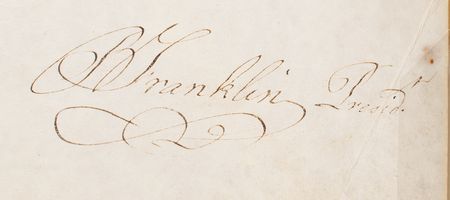 B Franklin Presidt